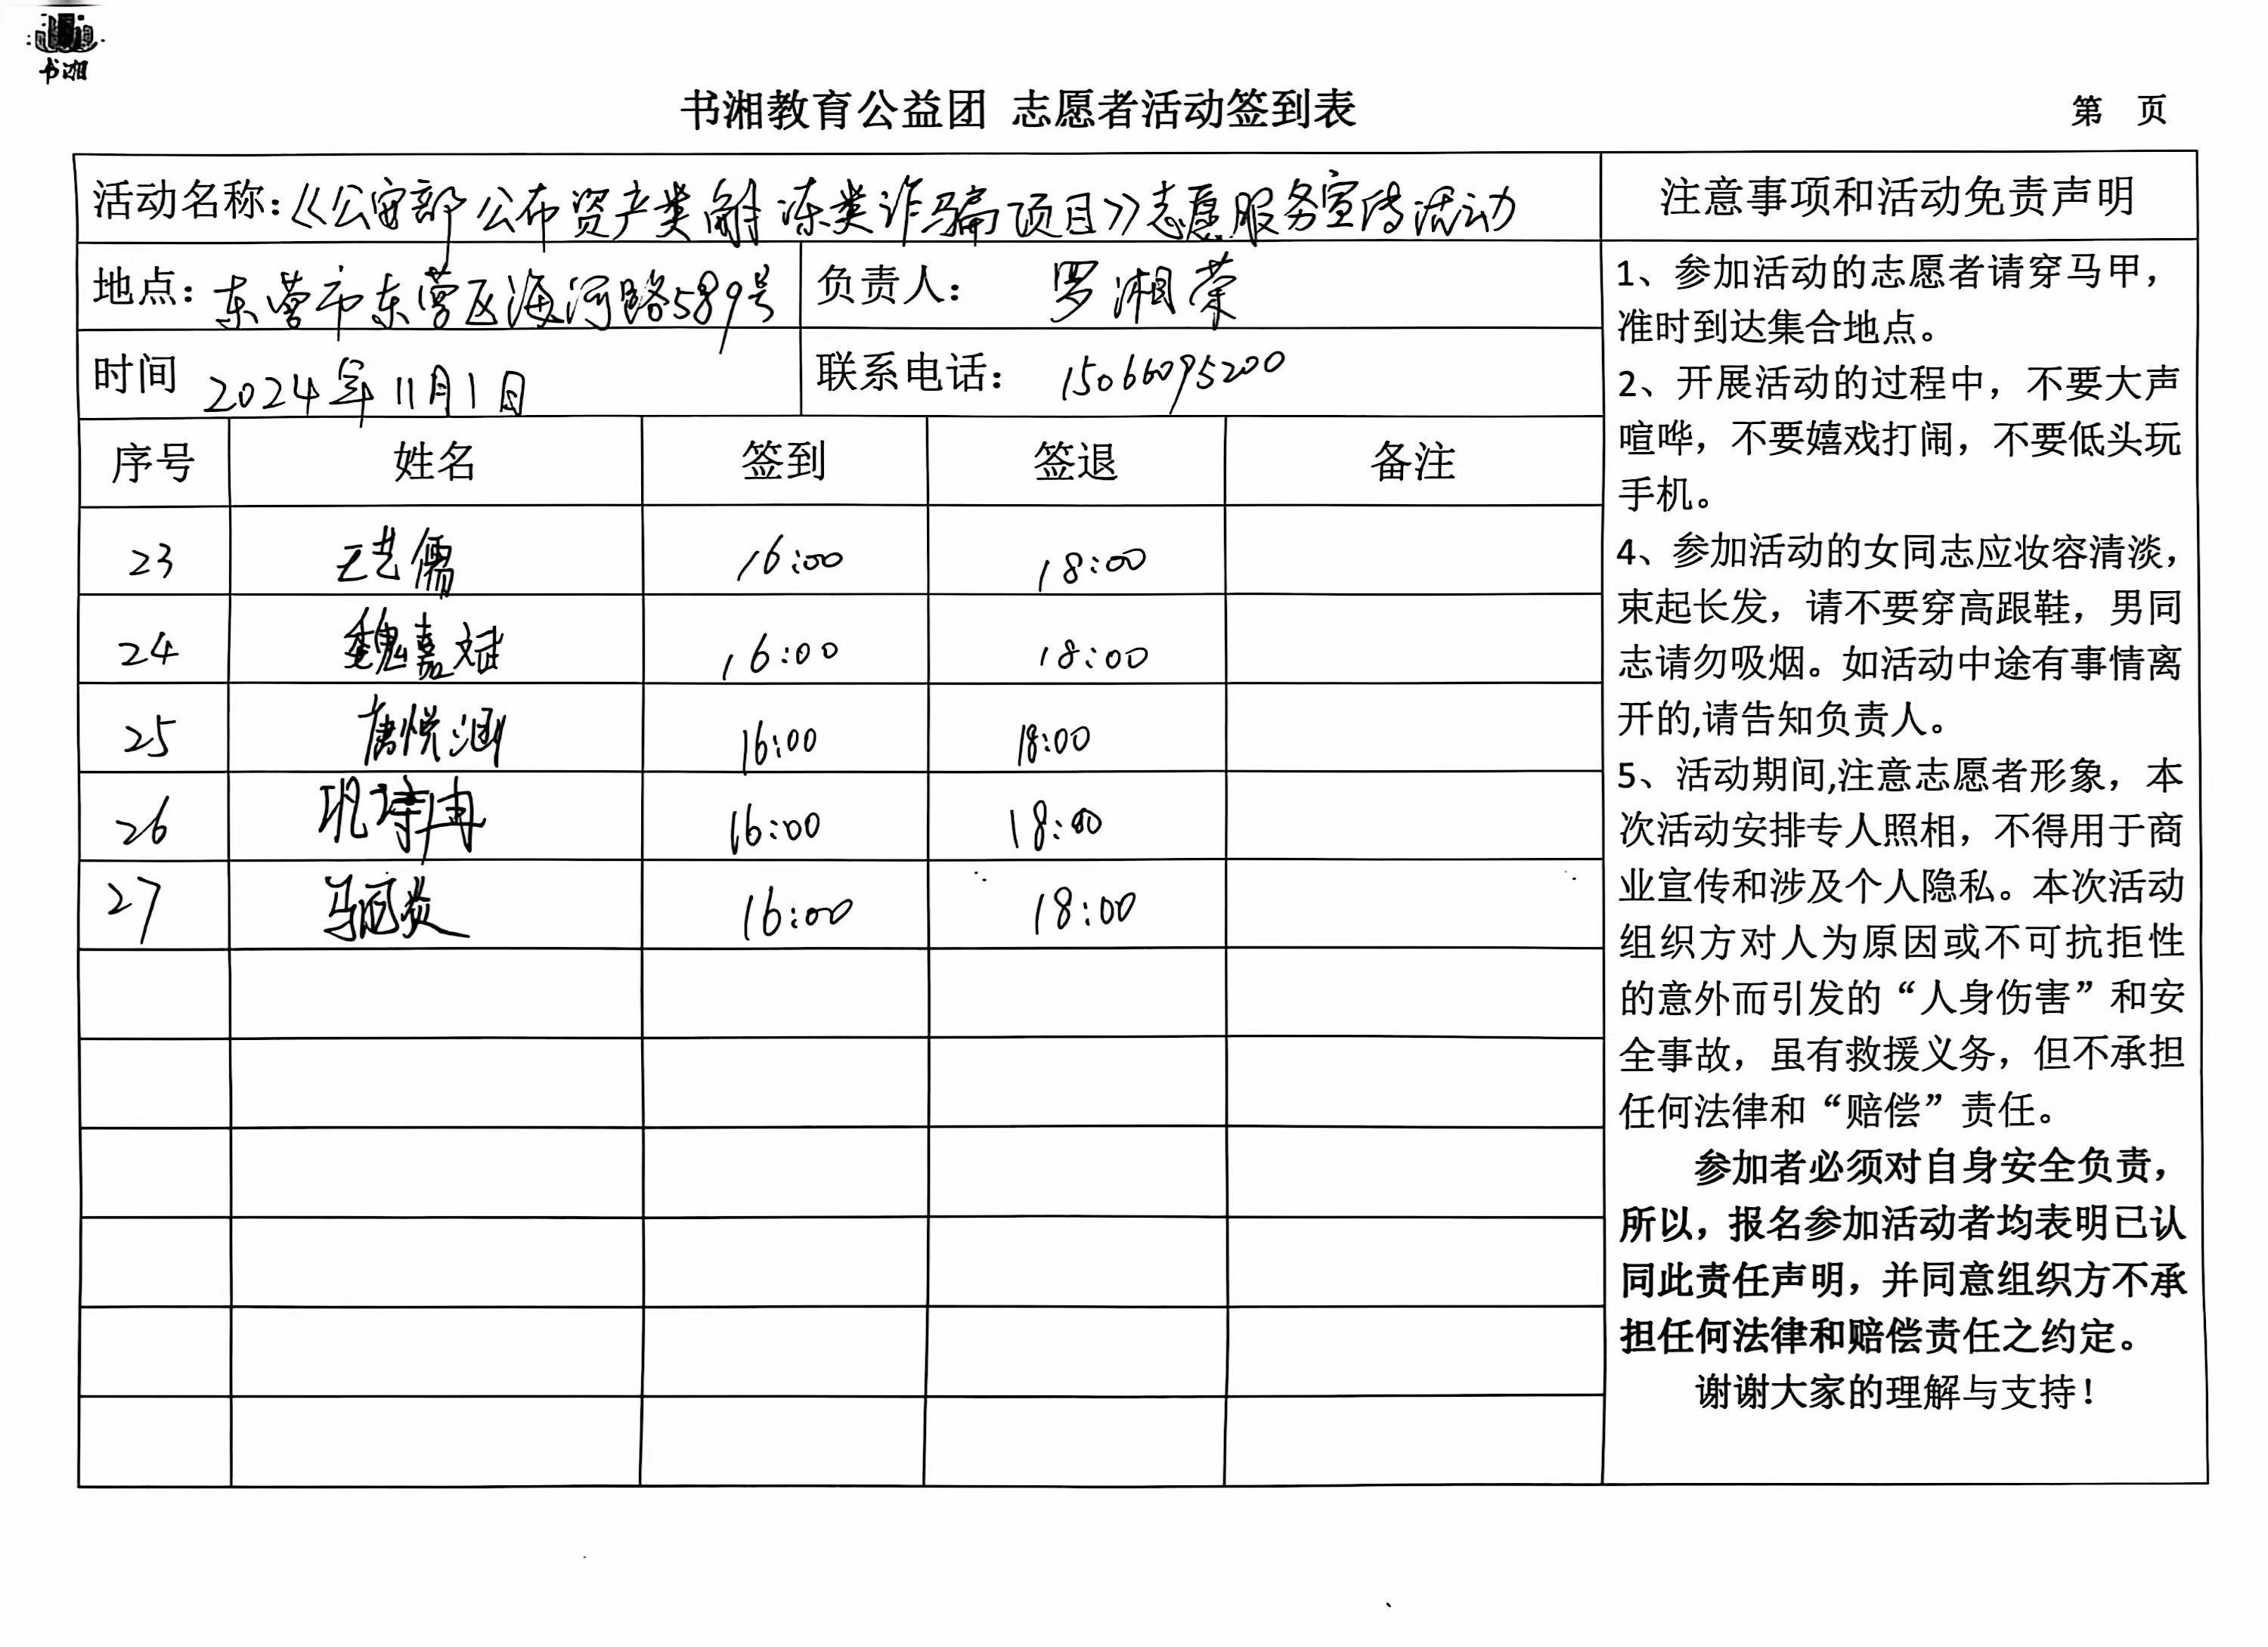 书湘
书湘教育公益团 志愿者活动签到表
第 页
活动名称：《公安部公布资产类解冻类诈骗项目》志愿服务宣传活动
地点：东营市东营区海河路589号
负责人：罗湘荣
时间 2024年11月1日
联系电话：15066095200
序号 姓名 签到 签退 备注
23 王艺儒 16:00 18:00
24 魏嘉斌 16:00 18:00
25 唐悦涵 16:00 18:00
26 巩诗冉 16:00 18:00
27 16:00 18:00
注意事项和活动免责声明
1、参加活动的志愿者请穿马甲，
准时到达集合地点。
2、开展活动的过程中，不要大声
喧哗，不要嬉戏打闹，不要低头玩
手机。
4、参加活动的女同志应妆容清淡，
束起长发，请不要穿高跟鞋，男同
志请勿吸烟。如活动中途有事情离
开的,请告知负责人。
5、活动期间,注意志愿者形象，本
次活动安排专人照相，不得用于商
业宣传和涉及个人隐私。本次活动
组织方对人为原因或不可抗拒性
的意外而引发的“人身伤害”和安
全事故，虽有救援义务，但不承担
任何法律和“赔偿”责任。
参加者必须对自身安全负责，
所以，报名参加活动者均表明已认
同此责任声明，并同意组织方不承
担任何法律和赔偿责任之约定。
谢谢大家的理解与支持！